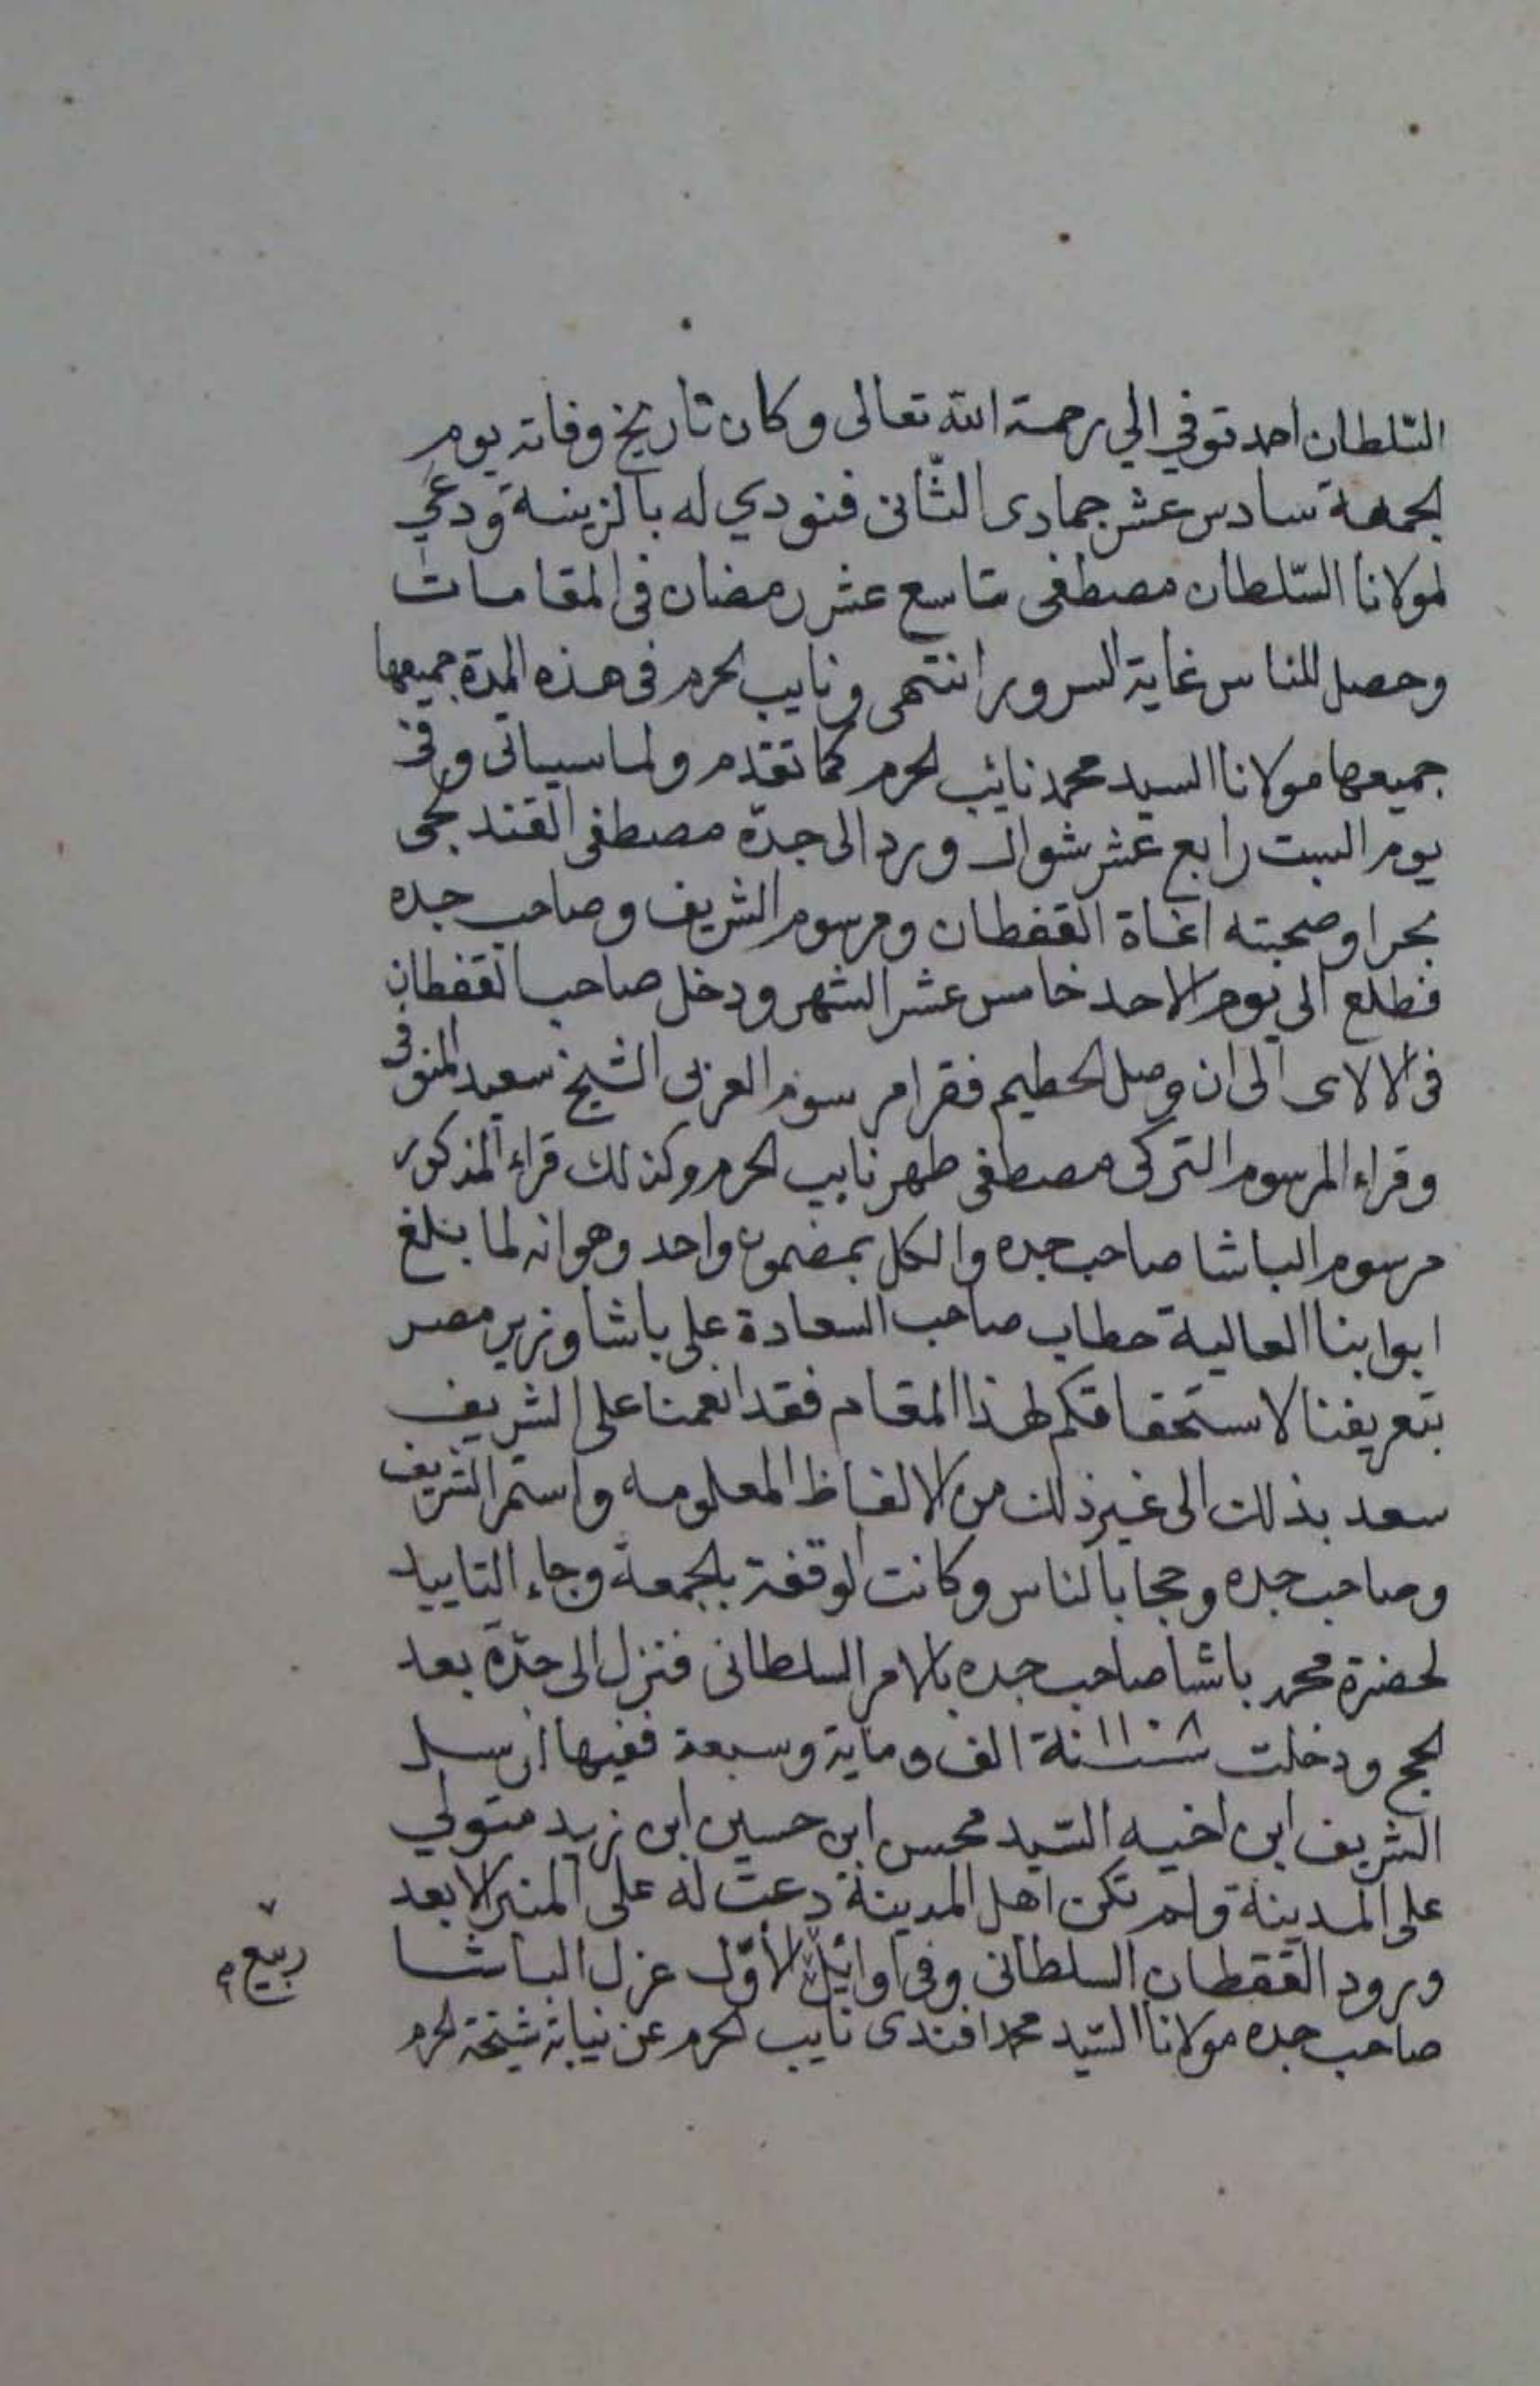 السّلطان احمد توفي الي رحمة الله تعالى وكان تاريخ وفاته يوم
الجمعة سادس عشر جمادى الثّانى فنودي له بالزينة ودعي
لمولانا السّلطان مصطفى تاسع عشر رمضان فى المقامات
وحصل للناس غاية السرور انتهى ونايب الحرم فى هذه المدة جميعها
جميعها مولانا السيد محمد نائب الحرم كما تقدم ولما سيياتى وفى
يوم السبت رابع عشر شوال ورد الى جدّة مصطفى القندبجى
بحرا وصحبته اغاة القفطان ومرسوم الشريف وصاحب جده
فطلع الى يوم الاحد خامس عشر الشهر ودخل صاحب القفطان
فى الالاى الى ان وصل الحطيم فقرا مرسوم العربى الشيخ سعيد المنوفى
وقراء المرسوم التركى مصطفى طهر نايب الحرم وكذلك قراء المذكور
مرسوم الباشا صاحب جده والكل بمضمون واحد وهو انه لما بلغ
ابوابنا العالية خطاب صاحب السعادة على باشا وزير مصر
بتعريفنا لاستحقاقكم لهذا المقام فقد انعمنا على الشريف
سعد بذلك الى غير ذلك من الالفاظ المعلومه واستمر الشريف
وصاحب جده وحجا بالناس وكانت الوقفة بالجمعة وجاء التاييد
لحضرة محمد باشا صاحب جده بالامر السلطانى فنزل الى جدّة بعد
الحج ودخلت سنة الف وماية وسبعة ففيها ارسل
الشريف ابن اخيه السّيد محسن ابن حسين ابن زيد متولي
على المدينة ولم تكن اهل المدينة دعت له على المنبر الا بعد
ورود القفطان السلطانى وفى اوائل الأوّل عزل الباشا
ربيع
صاحب جده مولانا السّيد محمد افندى نايب الحرم عن نيابة شيخة الحرم